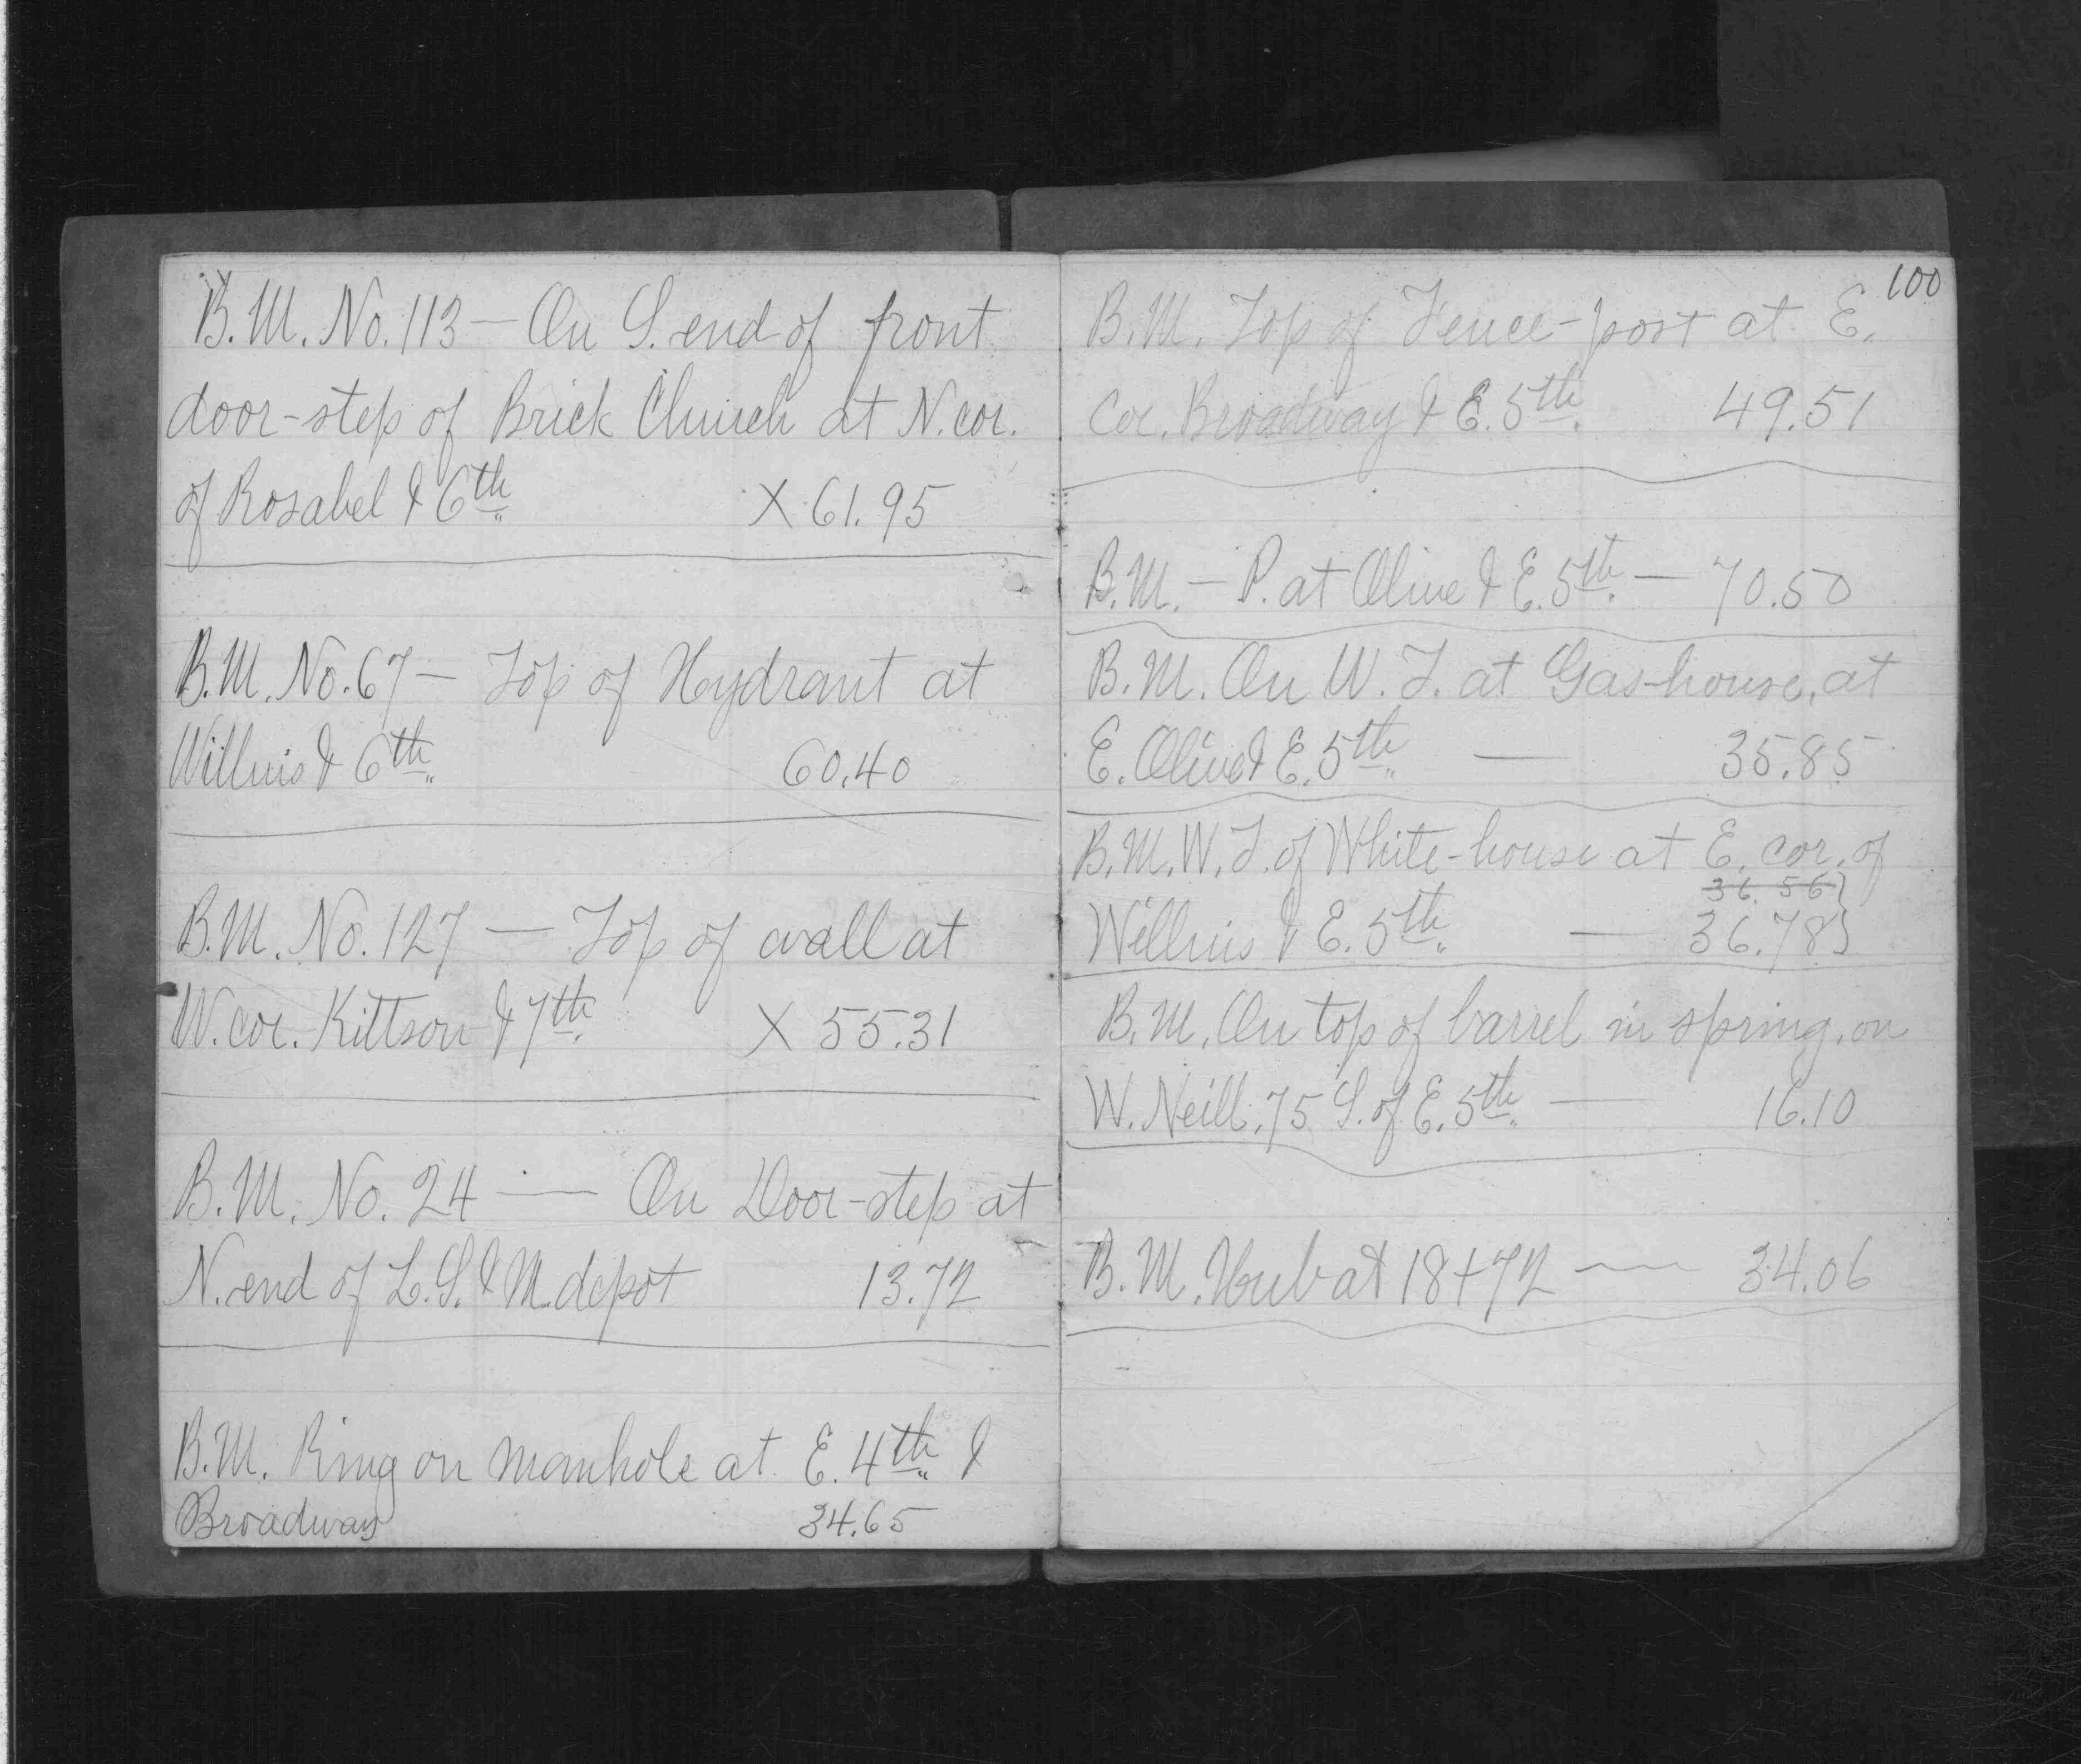 B.M. No. 113 — On S. end of front
door-step of Brick Church at N. cor.
of Rosabel & 6th X 61.95
B.M. No. 67 — Top of Hydrant at
Willius & 6th 60.40
B.M. No. 127 — Top of wall at
W. cor. Kittson & 7th X 55.31
B.M. No. 24 — On Door-step at
N. end of L.S. & M. depot 13.72
B.M. Ring on manhole at E. 4th &
Broadway 34.65
100
B.M. Top of Fence-post at E.
Cor. Broadway & E. 5th 49.51
B.M. — P. at Olive & E. 5th — 70.50
B.M. On W. T. at Gas-house, at
E. Olive & E. 5th — 35.85
B.M. W. T. of White-house at E. cor. of
36.56
Willius & E. 5th — 36.78
B.M. On top of barrel in spring, on
W. Neill, 75 S. of E. 5th — 16.10
B.M. Hub at 18+72 — 34.06